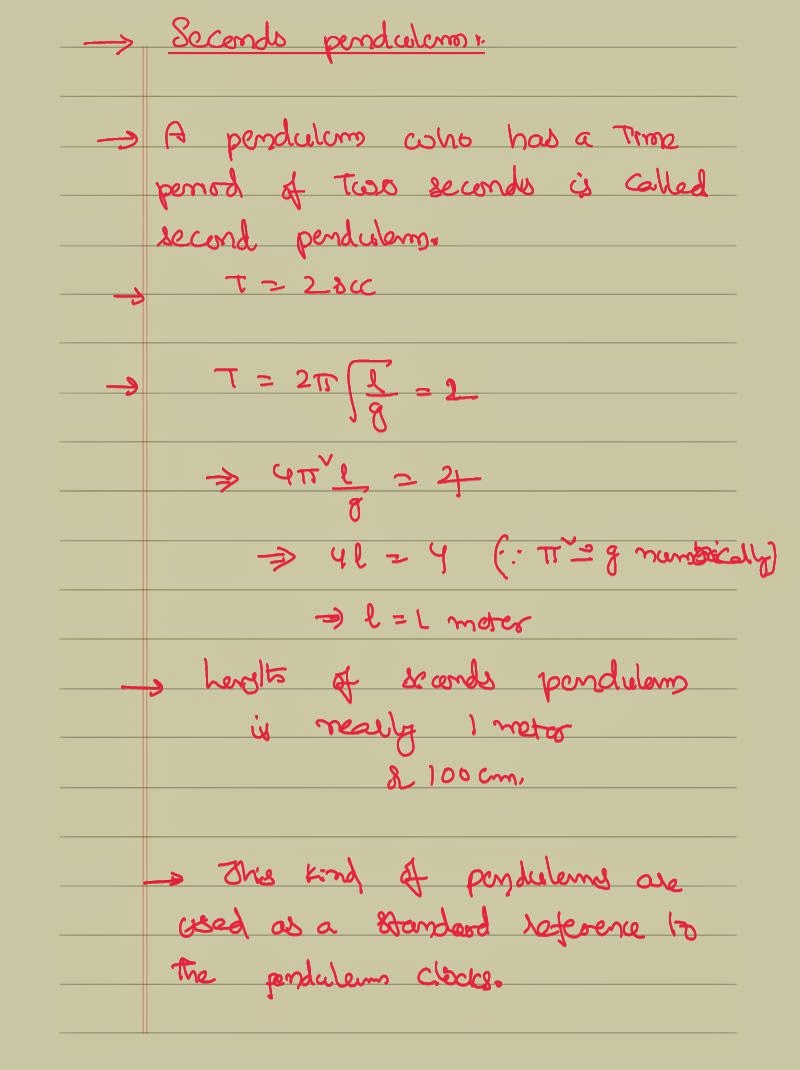 → Seconds pendulum:
→ A pendulum who has a Time
period of Two seconds is called
second pendulum.
→ T = 2 sec
→ T = 2π √(l/g) = 2
⇒ 4π² l/g = 4
⇒ 4l = 4 (∵ π² ≃ g numerically)
⇒ l = 1 meter
→ Length of seconds pendulum
is nearly 1 meter
& 100 cm.
→ This kind of pendulums are
used as a standard reference to
the pendulum clocks.